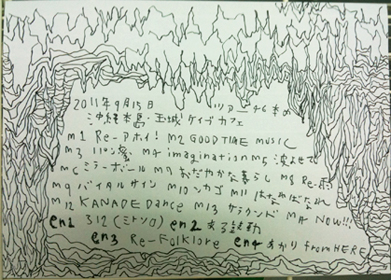 2011年9月15日 ツアー
沖縄本島・玉城 ケイブカフェ
m1 Re-アホイ! m2 GOOD TIME MUSIC
m3 m4 imagination m5 波よせて
m6 ミラーボール m7 おだやかな暮らし m8 Re-
m9 バイタルサイン m10 m11 はなればなれ
m12 KANADE Dance m13 サラウンド m14 NOW!!!
en1 312(ミトソロ) en2 ある鼓動
en3 Re-Folklore en4 あかり from HERE